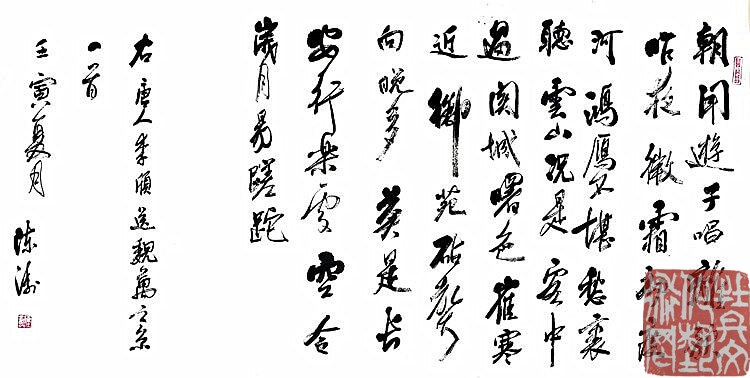 朝聞遊子唱離歌
昨夜微霜初渡
河鴻鴈不堪愁裏
聽雲山況是客中
過關城曙色催寒
近御苑砧聲
向晚多莫是長
安行樂處空令
歲月易蹉跎
右唐人李頎送魏萬之京
一首
壬寅夏月
陈